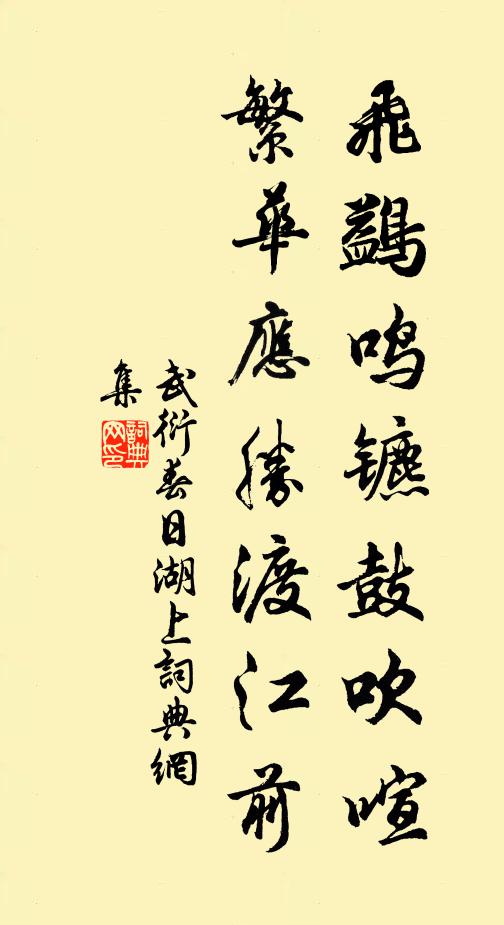 飛鷁鳴镳鼓吹喧
繁華應勝渡江前
武衍春日湖上詞典網
集
詞典网印